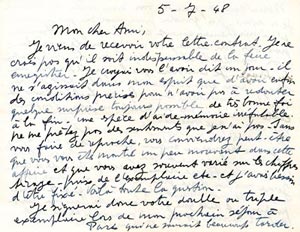 5-7-48
Mon cher Ami,
Je viens de recevoir votre lettre-contrat. Je ne
crois pas qu'il soit indispensable de la faire
enregistrer. Je croyais vous l'avoir dit un jour - il
ne s'agissait dans mon esprit que d'avoir enfin
des conditions précises pour n'avoir pas à redouter
quelque surprise toujours possible de très bonne foi
à la fin. une espèce d'aide-mémoire infaillible.
ne me prêtez pas des sentiments que je n'ai pas. Sans
vous faire de reproche, vous conviendrez peut-être
que vous vous êtes montré un peu dans cette
affaire et que vous avez souvent varié sur les chiffres
tirage - prix de l'exemplaire etc. et j'avais besoin
d'être fixé. Voilà toute la question.
Je signerai donc votre double ou triple
exemplaire lors de mon prochain séjour à
Paris qui ne saurait beaucoup tarder.